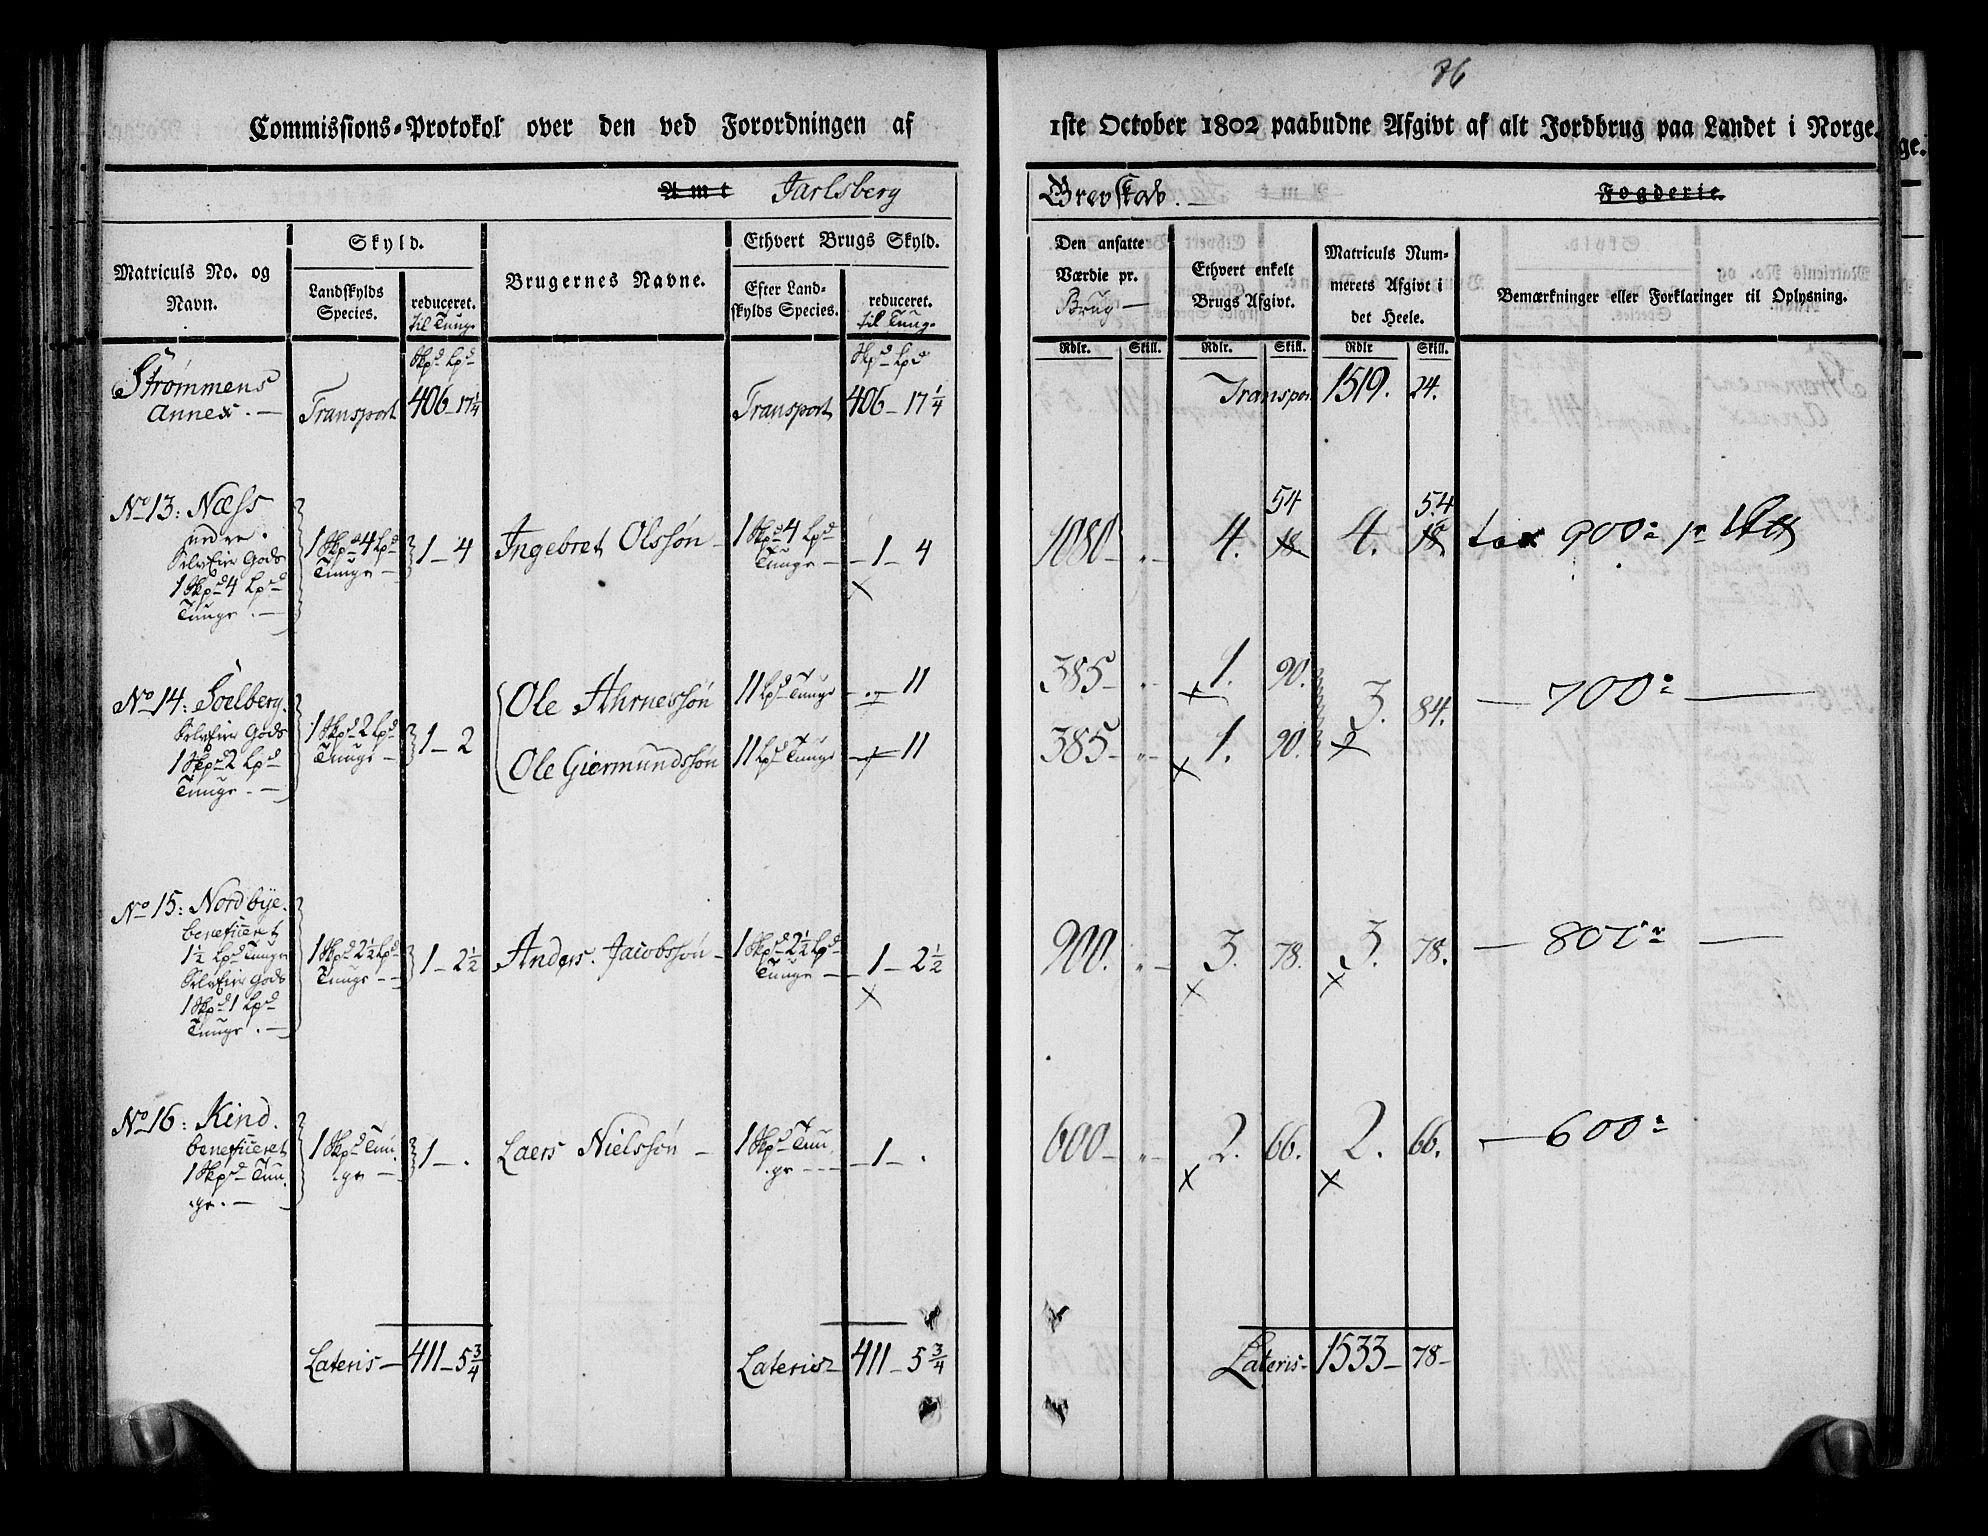 76
Commissions-Protokol over den ved Forordningen af 1ste October 1802 paabudne Afgivt af alt Jordbrug paa Landet i Norge.
Amt Jarlsberg Grevskab. Fogderie.
Matriculs No. og Navn.
Skyld.
Landskylds Species.
reduceret. til Tunge
Brugernes Navne.
Ethvert Brugs Skyld.
Efter Landskylds Species.
reduceret. til Tung.
Den ansatte Værdie pr. Brug
Ethvert enkelt Brugs Afgivt.
Matriculs Nummerets Afgivt i det Heele.
Bemærkninger eller Forklaringer til Oplysning.
Rdlr. Skill. Rdlr. Skill. Rdlr Skill.
Skpd Lpd Skpd Lpd
Strømmens Annex. — Transport 406 - 17 1/4 Transport 406 - 17 1/4 Transpor. 1519. 24.
No 13: Næss
nedre.
SelvEier Gods
1 Skpd 4 Lpd
Tunge. —
1 Skpd 4 Lpd Tunge — 1 - 4 Ingebret Olssøn — 1 Skpd 4 Lpd Tunge — 1 - 4 1080 - 4. 54 18 4. 54 18 tax 900
No 14: Soelberg.
Selveier Gods
1 Skpd 2 Lpd
Tunge. —
1 Skpd 2 Lpd Tunge — 1 - 2 Ole Ahrnessøn 11 Lpd Tunge - 11 385 - 1. 90. 3. 84. — 700 —
Ole Giermundssøn 11 Lpd Tunge - 11 385 - 1. 90.
No 15: Nordbye.
beneficeret
1 1/2 Lpd Tunge
SelvEier Gods
1 Skpd 1 Lpd
Tunge. —
1 Skpd 2 1/2 Lpd Tunge — 1 - 2 1/2 Anders Jacobssøn — 1 Skpd 2 1/2 Lpd Tunge — 1 - 2 1/2 900. 3. 78. 3. 78. — 800 —
No 16: Kind.
beneficeret
1 Skpd Tun
ge. —
1 Skpd Tunge — 1 - . Laers Nielssøn — 1 Skpd Tunge — 1 - . 600 - 2. 66. 2. 66. — 600
Lateris — 411 - 5 3/4 Lateris - 411 - 5 3/4 Lateris - 1533 - 78 -